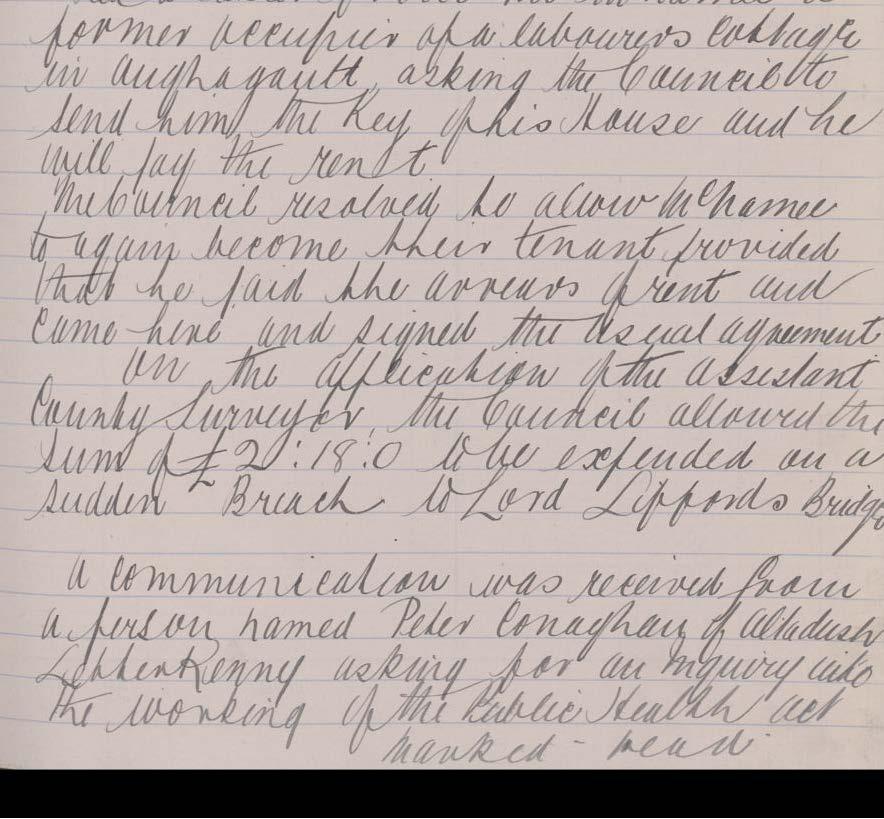 former occupier of a labourers Cottage
in Aughagault, asking the Council to
send him the Key of his House and he
will pay the rent
The Council resolved to allow McNamee
to again become their tenant provided
that he paid the arrears of rent and
Came here and signed the usual agreement
On the application of the assistant
County Surveyor, the Council allowed the
sum of £2:18:0 to be expended on a
sudden Breach to Lord Liffords Bridge
A communication was received from
a person named Peter Conaghan of
LetterKenny asking for an inquiry into
the working of the Public Health act
Marked - read